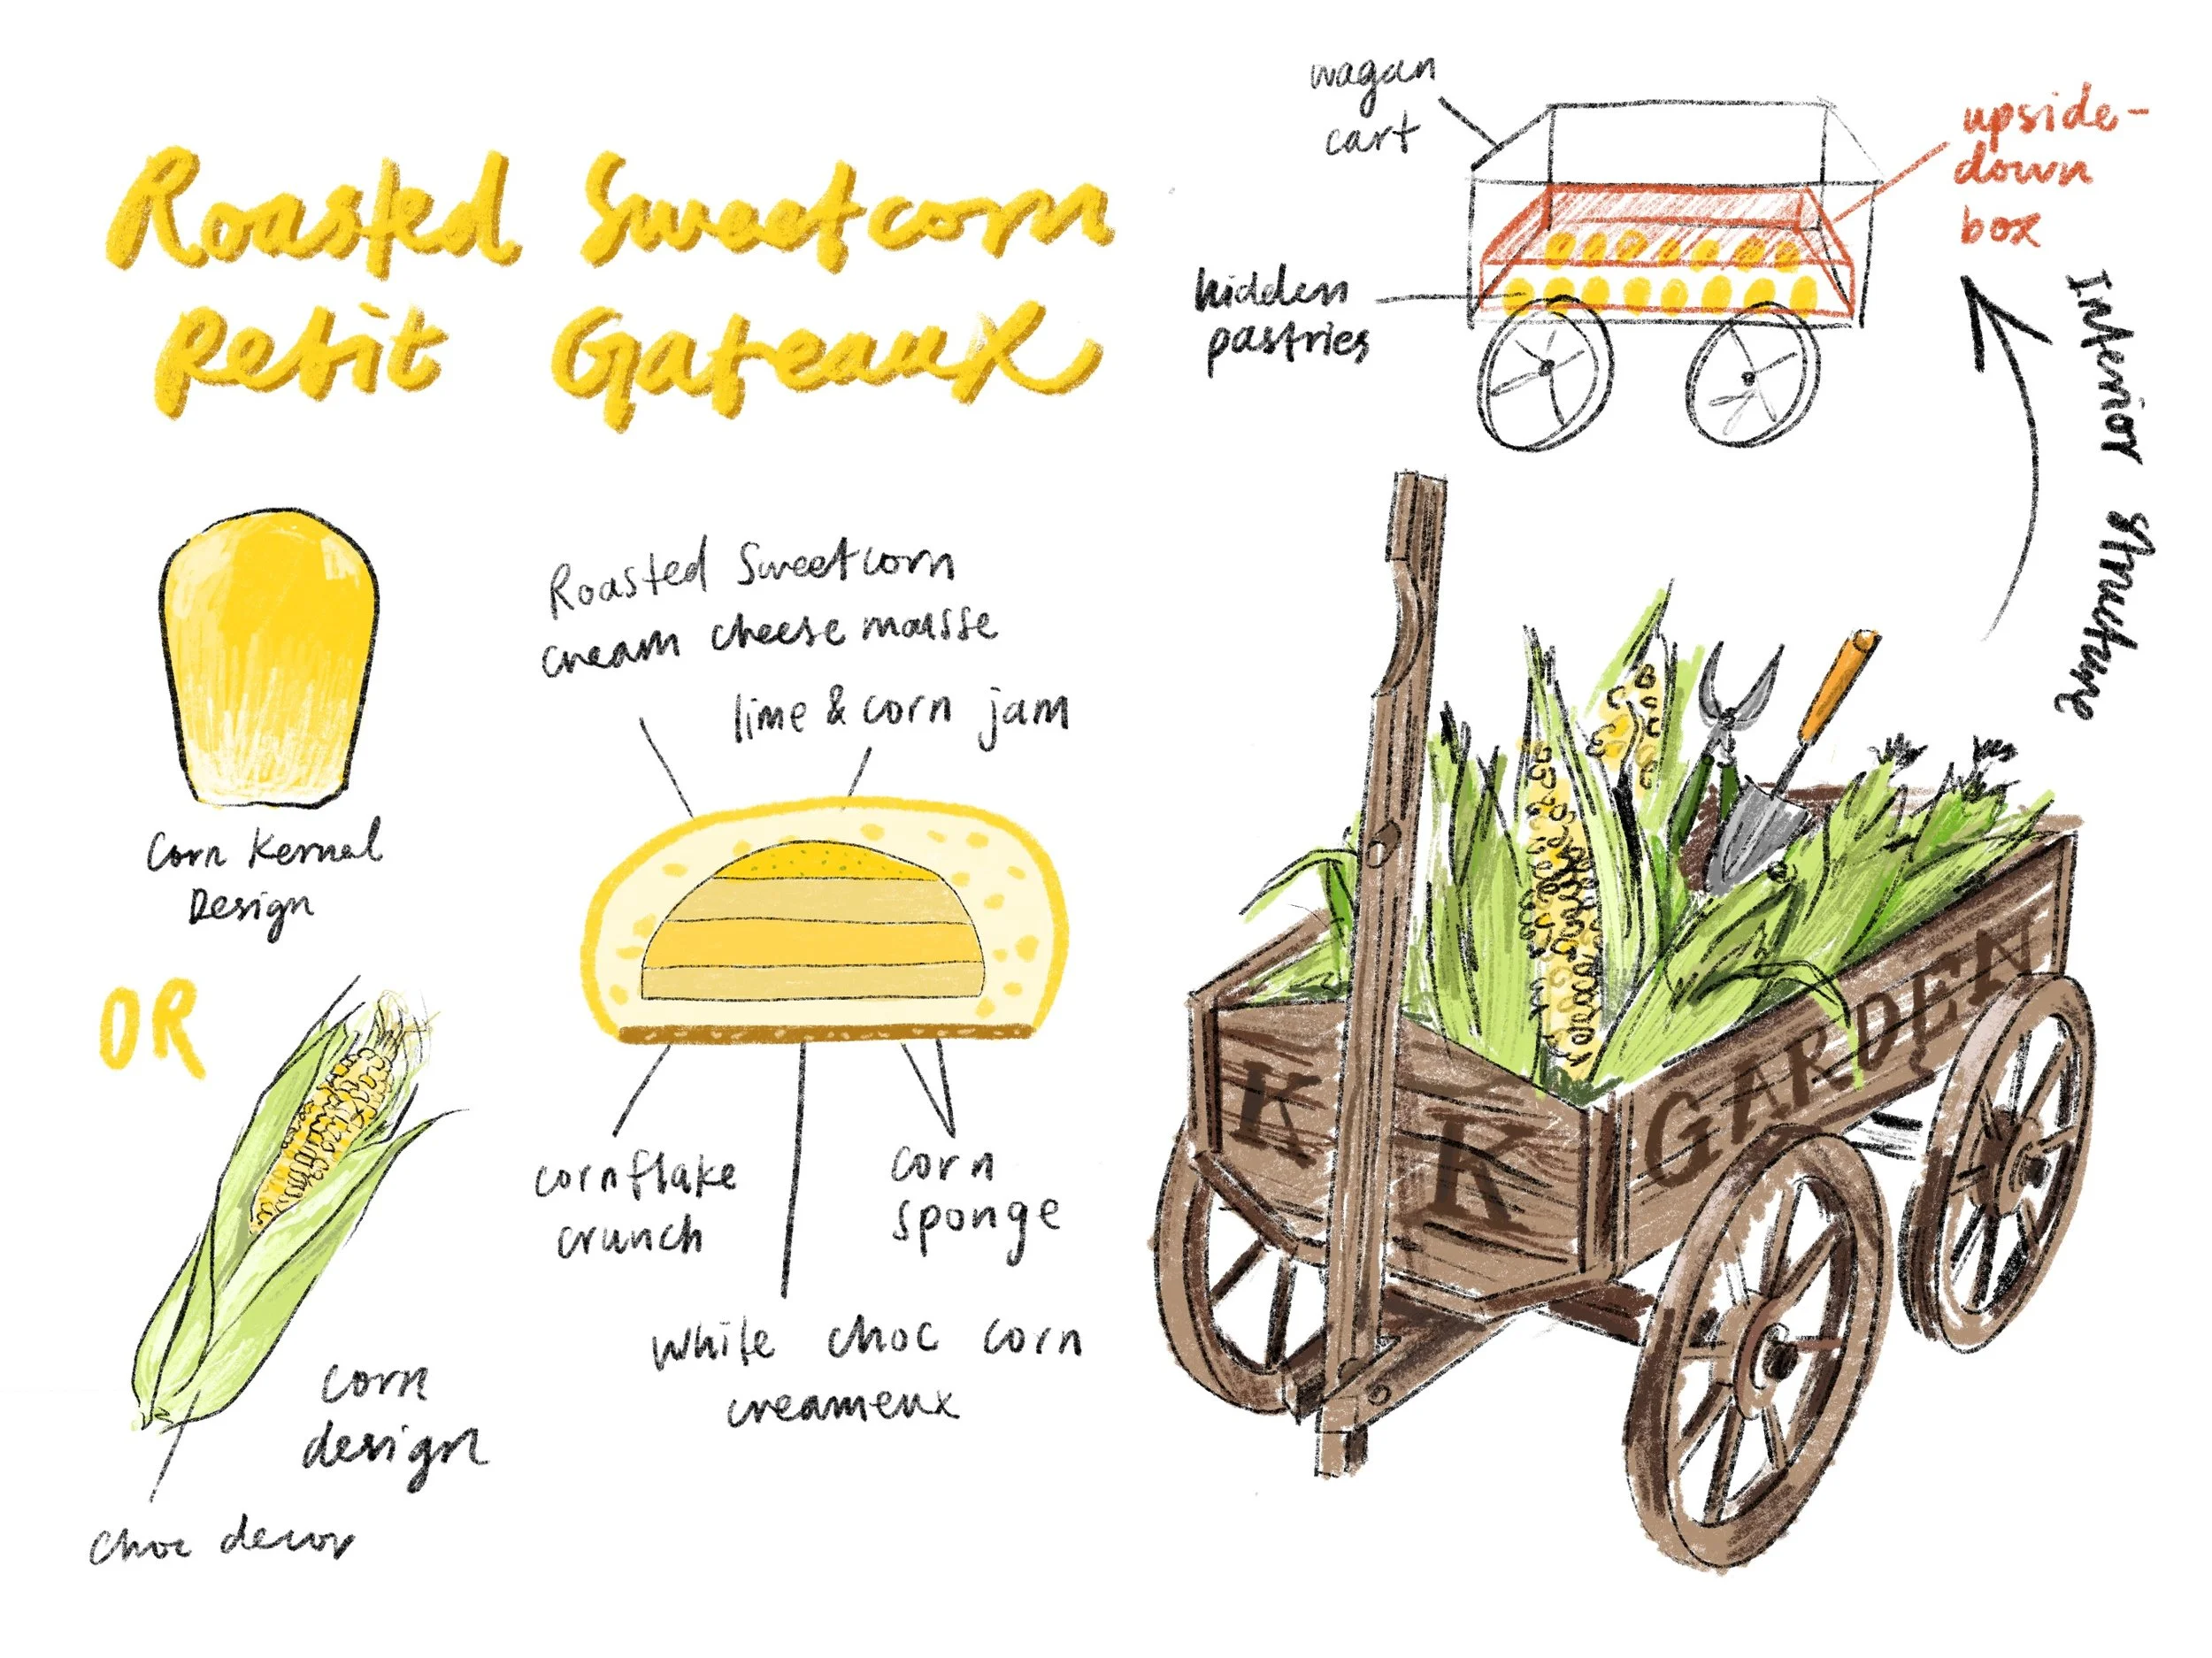 Roasted Sweetcorn
Petit Gateaux
Corn Kernel
Design
OR
corn
design
choc decor
Roasted Sweetcorn
cream cheese mousse
lime & corn jam
cornflake
crunch
corn
sponge
white choc corn
creameux
wagan
cart
upside-
down
box
hidden
pastries
Interior Structure
K K GARDEN